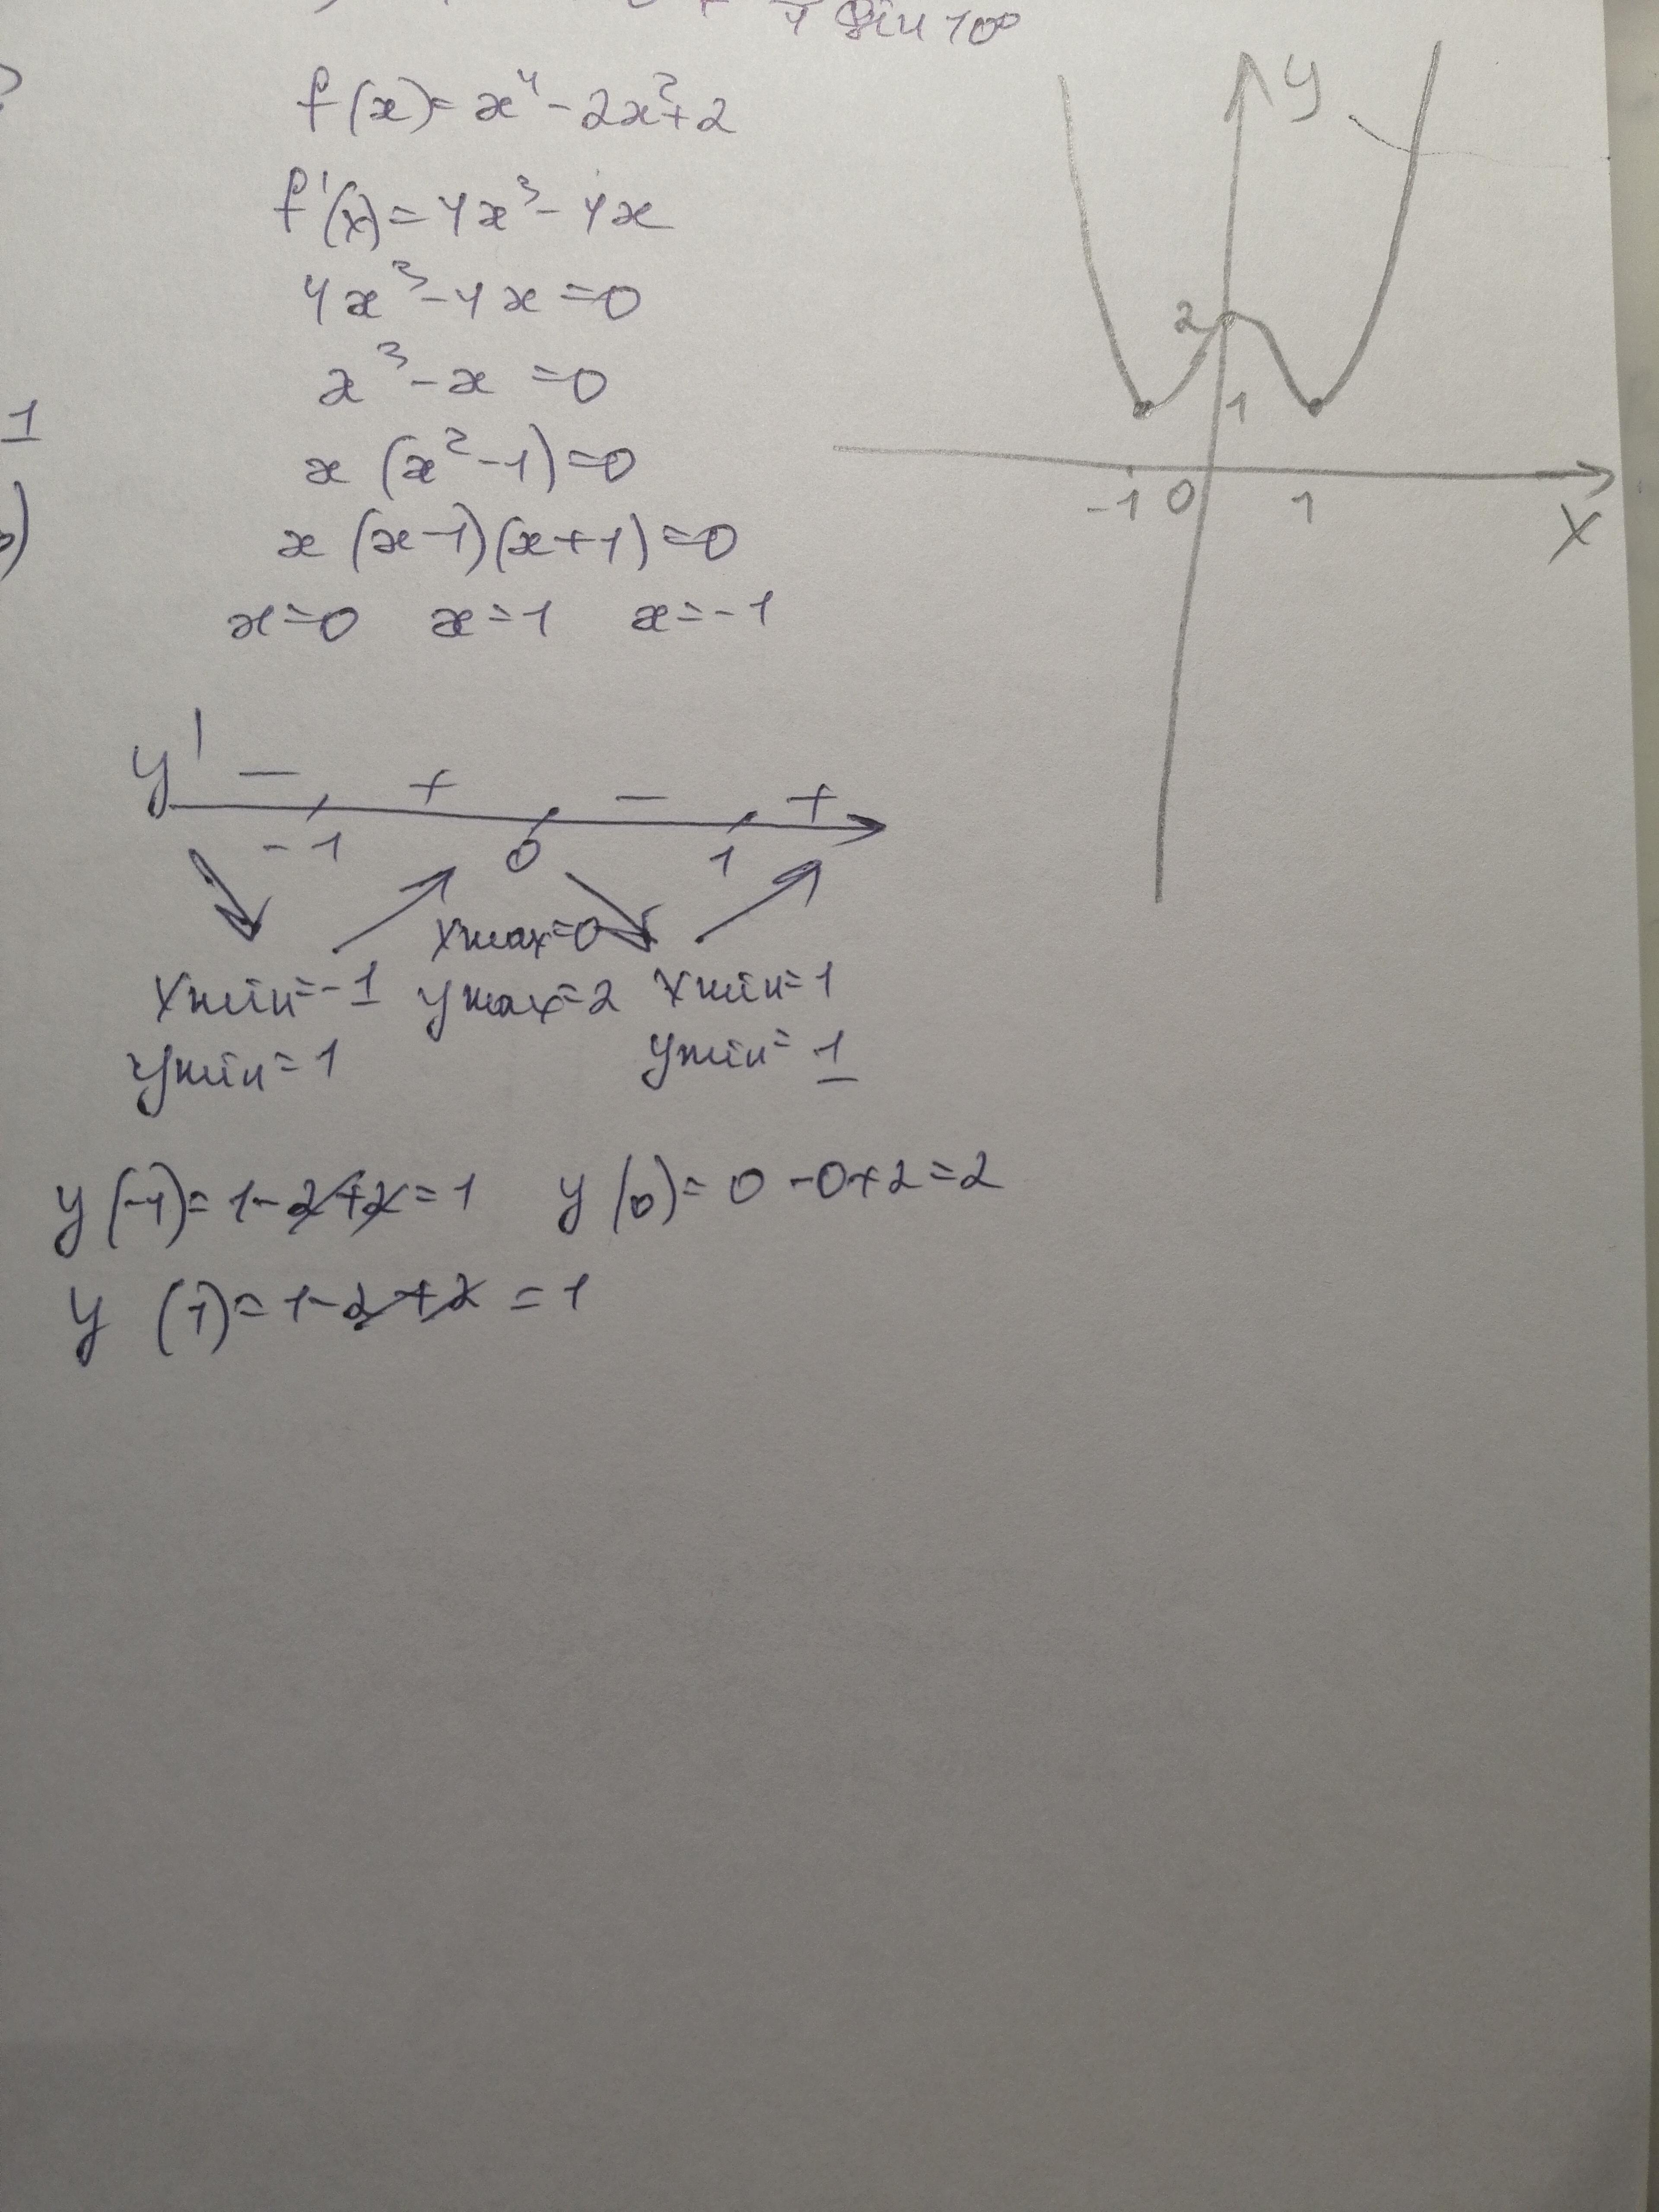 sin 10°
f(x)= x⁴ - 2x²+2
f'(x)= 4x³ - 4x
4x³ - 4x = 0
x³ - x = 0
x (x² - 1) = 0
x (x-1)(x+1) = 0
x=0 x=1 x=-1
y' - + - +
-1 0 1
xmax=0
xmin=-1 ymax=2 xmin=1
ymin=1 ymin=1
y(-1)= 1-2+2=1 y(0)= 0-0+2=2
y (1)= 1-2+2 = 1
y
2
1
-1 0 1
x
1